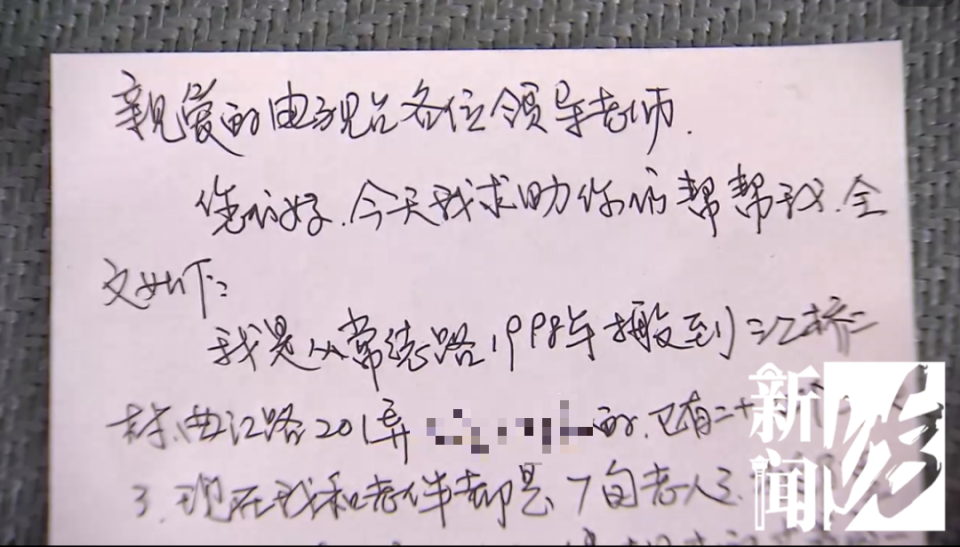 亲爱的电视台各位领导老师.
您们好.今天我求助你们帮帮我.全
文如下:
我是从常德路1998年搬到江桥二
村.曲江路201弄 的.已有二十
了.现在我和老伴都是7旬老人了.
新闻